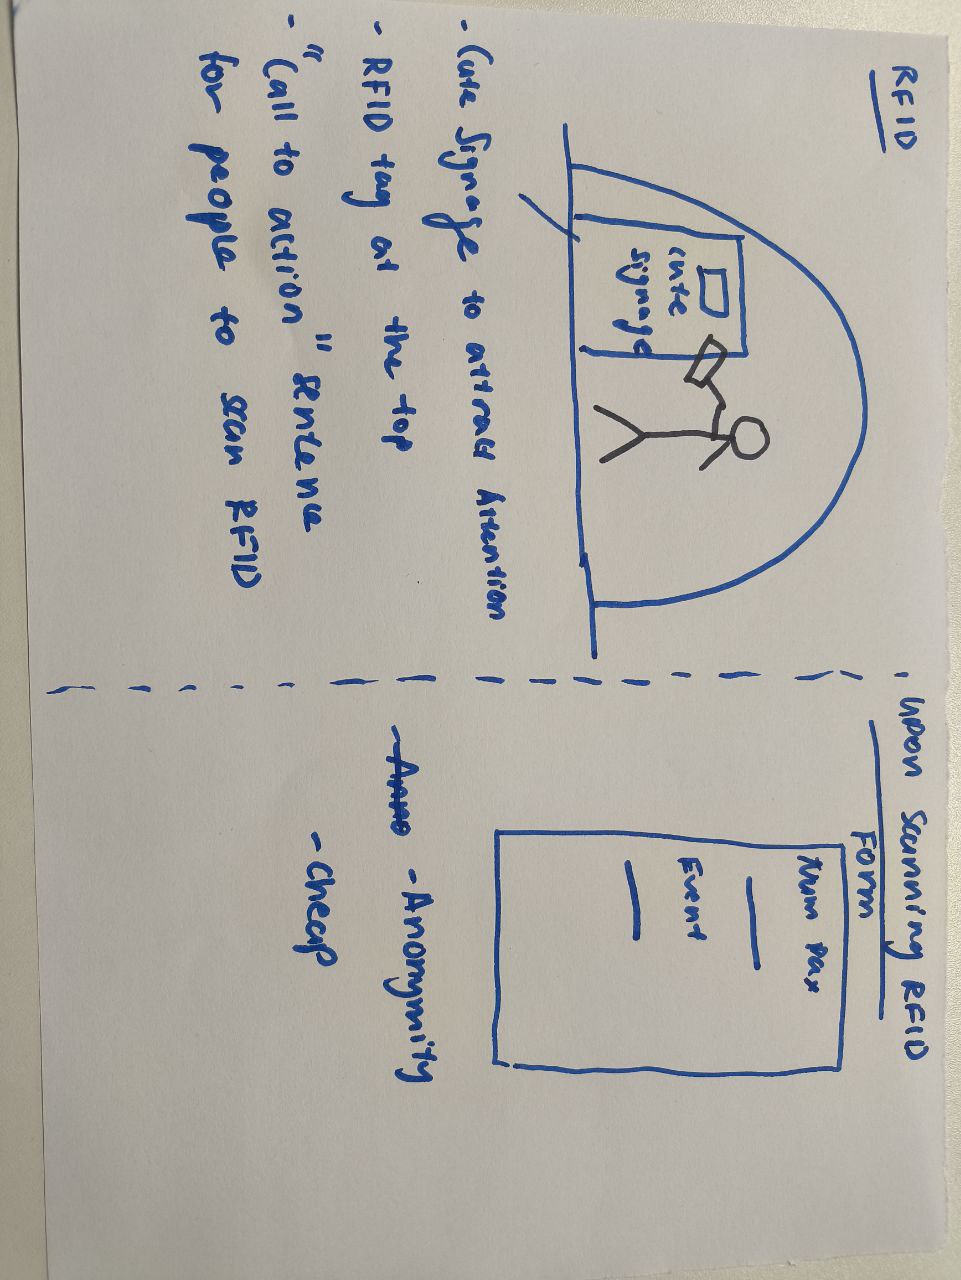 RFID
cute
signage
- Cute Signage to attract Attention
- RFID tag at the top
- "Call to action" sentence
for people to scan RFID
upon Scanning RFID
Form
Num Pax
Event
- Anno - Anonymity
- Cheap